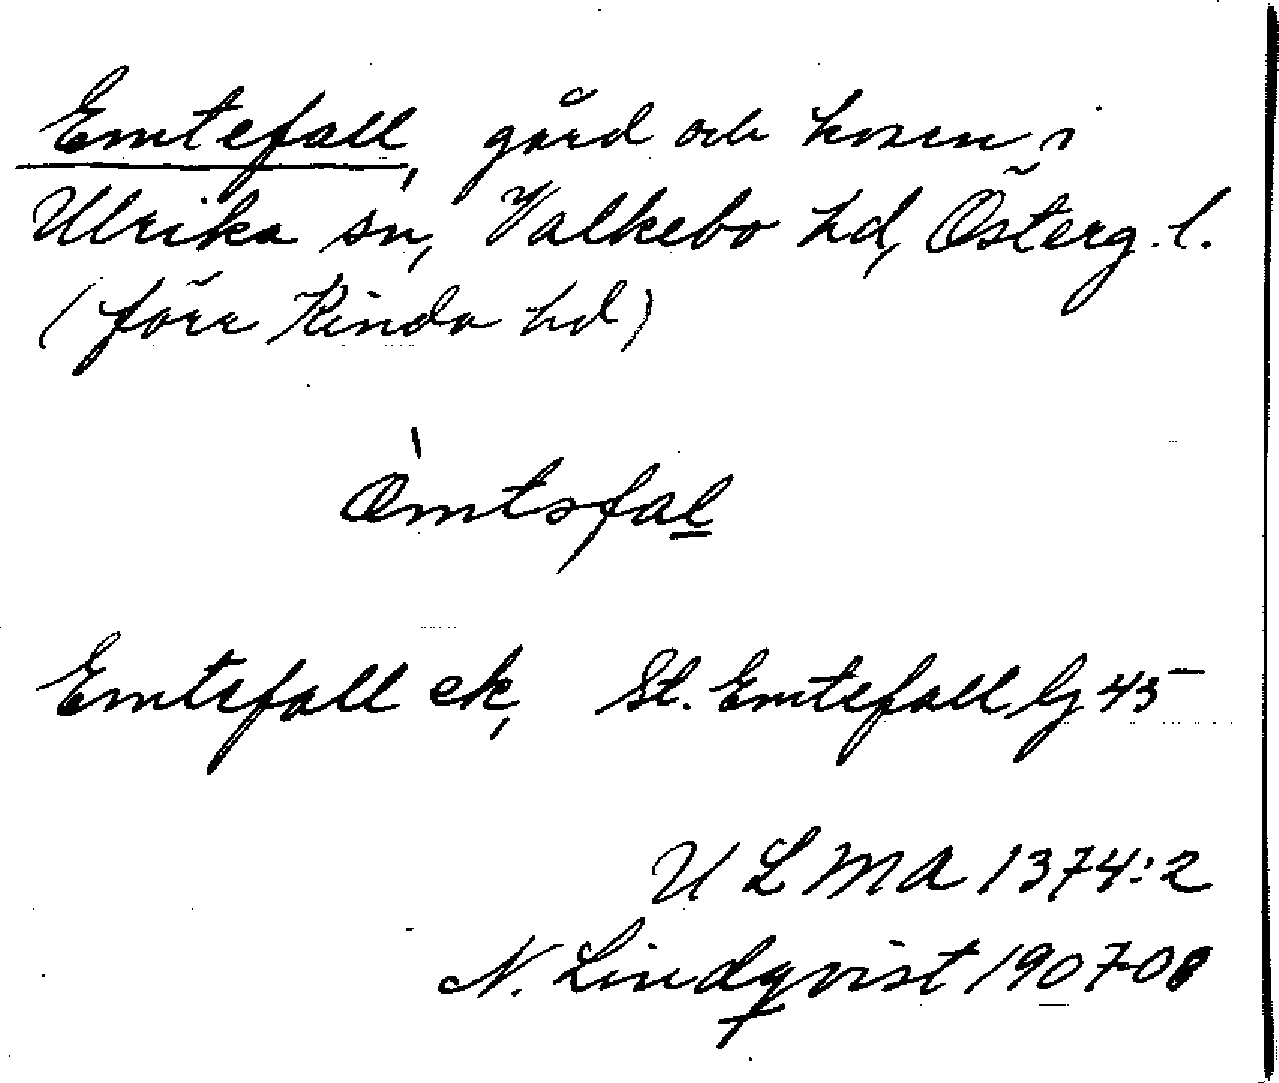 Emtefall, gård och kvarn i
Ulrika sn, Valkebo hd, Österg. l.
(förr Kinda hd)
æ̀mtsfal
Emtefall ek, St. Emtefall Gj 45
ULMA 1374:2
N. Lindqvist 1907-08